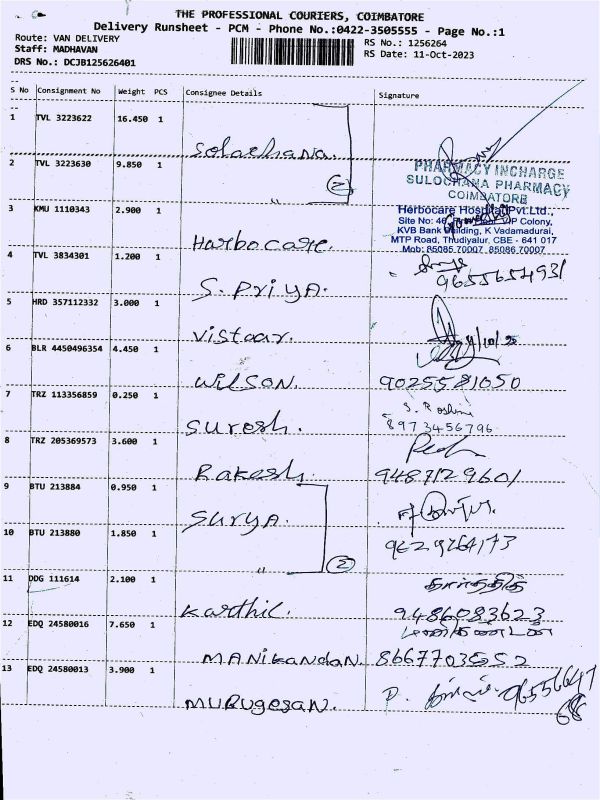 THE PROFESSIONAL COURIERS, COIMBATORE
Delivery Runsheet - PCM - Phone No.:0422-3505555 - Page No.:1
Route: VAN DELIVERY
RS No.: 1256264
Staff: MADHAVAN
RS Date: 11-Oct-2023
DRS No.: DCJB125626401
S No Consignment No Weight PCS Consignee Details Signature
1 TVL 3223622 16.450 1
2 TVL 3223630 9.850 1 " 2
PHARMACY INCHARGE
SULOCHANA PHARMACY
COIMBATORE
3 KMU 1110343 2.900 1 Harbocare.
Herbocare Hospital Pvt.Ltd.,
Site No: 46, VIP Colony,
KVB Bank Building, K Vadamadurai,
MTP Road, Thudiyalur, CBE - 641 017
Mob: 85085 70007, 85086 70007
4 TVL 3834301 1.200 1 S. PRIYA. 9655654931
5 HRD 357112332 3.000 1 Vistaar.
6 BLR 4450496354 4.450 1 WILSON. 9025581050
7 TRZ 113356859 0.250 1 Suresh. S. Roshini
8973456796
8 TRZ 205369573 3.600 1 Rakesh. 9487129601
9 BTU 213884 0.950 1 SURYA.
10 BTU 213880 1.850 1 " 2 9629264173
11 DDG 111614 2.100 1 Karthic. கார்த்திக்
9486083623
12 EDQ 24580016 7.650 1 MANikandan. மணிகண்டன்
8667703552
13 EDQ 24580013 3.900 1 MURUgesan. P.